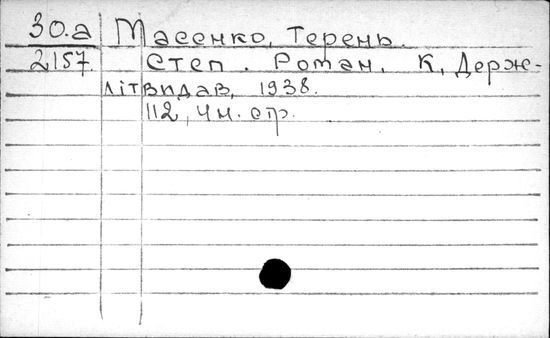 30.а Масенко, Терень.
2157. Степ. Роман. К, Держ-
літвидав, 1938.
112, 4 н. стр.